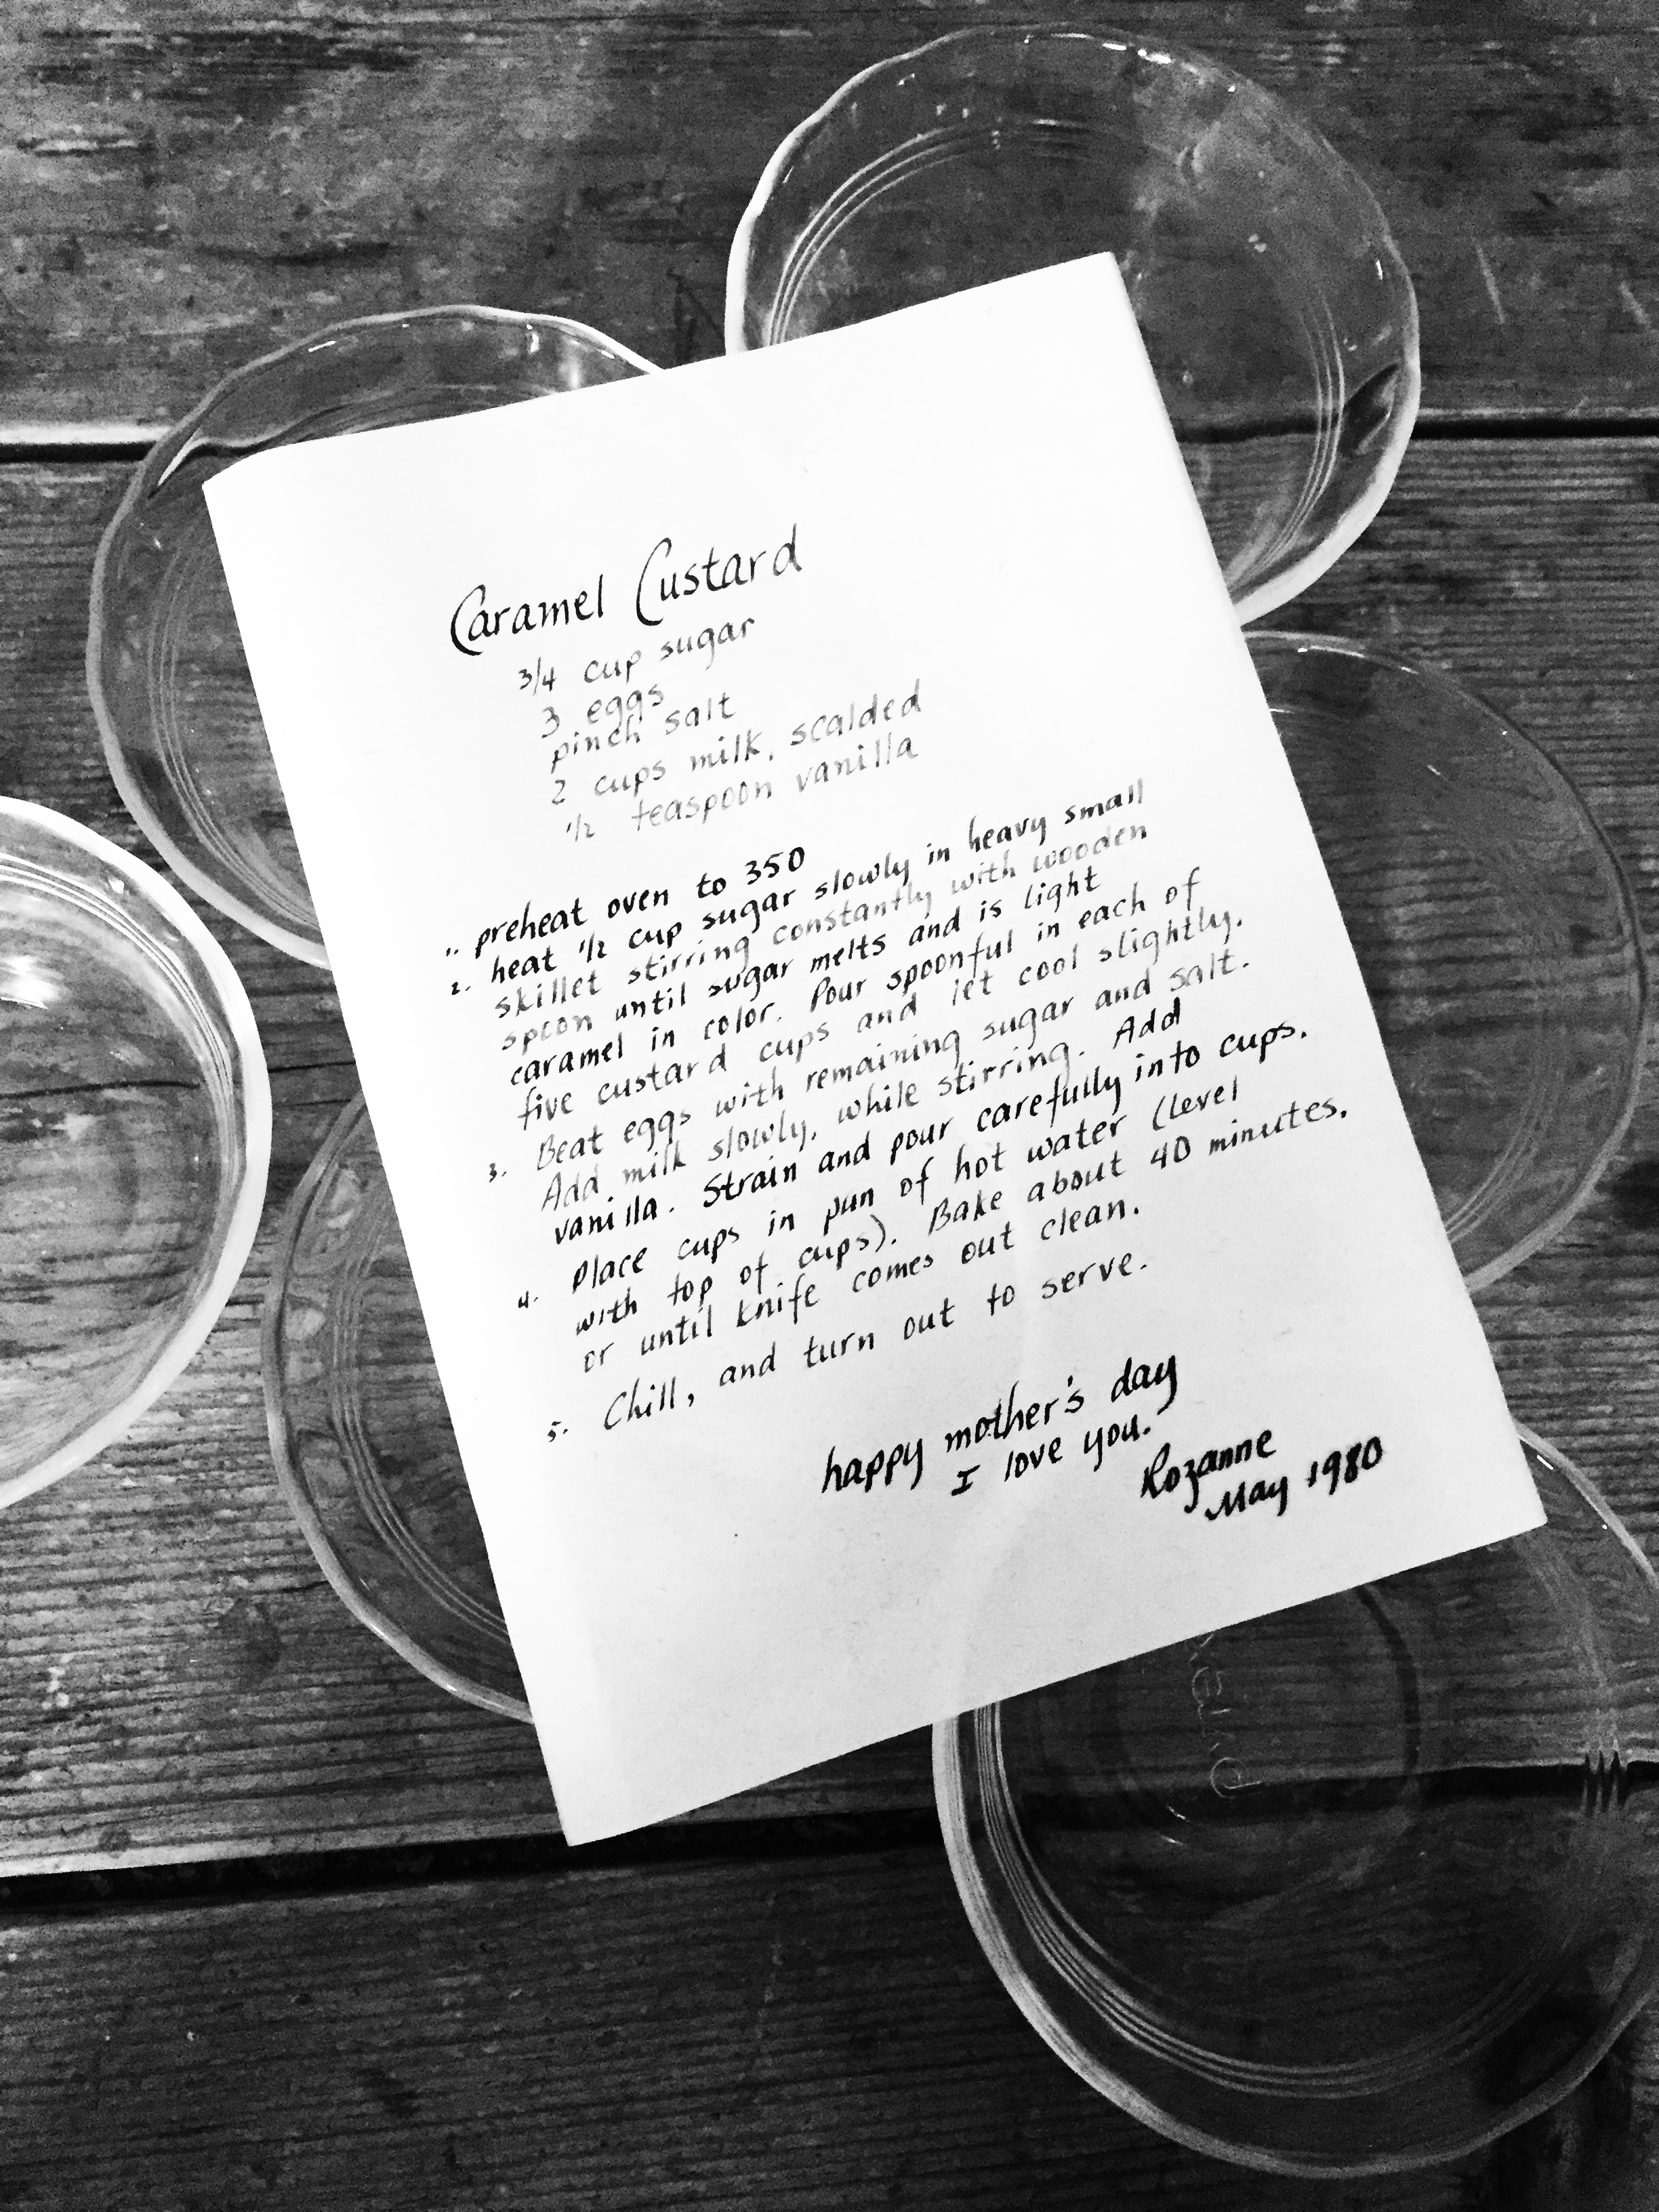 Caramel Custard
3/4 cup sugar
3 eggs
pinch salt
2 cups milk, scalded
1/2 teaspoon vanilla
1. preheat oven to 350
2. heat 1/2 cup sugar slowly in heavy small
skillet stirring constantly with wooden
spoon until sugar melts and is light
caramel in color. Pour spoonful in each of
five custard cups and let cool slightly.
3. Beat eggs with remaining sugar and salt.
Add milk slowly, while stirring. Add
vanilla. Strain and pour carefully into cups.
4. Place cups in pan of hot water (level
with top of cups). Bake about 40 minutes.
or until knife comes out clean.
5. Chill, and turn out to serve.
happy mother's day
I love you.
Rozanne
May 1980